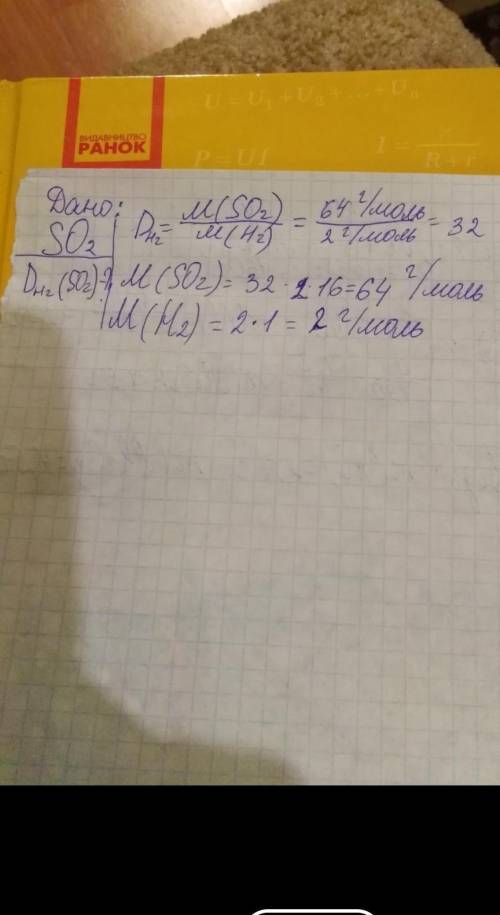 U = U₁ + U₂ + ... + Uₙ
ВИДАВНИЦТВО
РАНОК
P = UI
I = ─── / R + r
Дано:
SO₂
D_H₂(SO₂)?
D_H₂ = M(SO₂)/M(H₂) = 64 г/моль / 2 г/моль = 32
M(SO₂) = 32 · 2 · 16 = 64 г/моль
M(H₂) = 2 · 1 = 2 г/моль